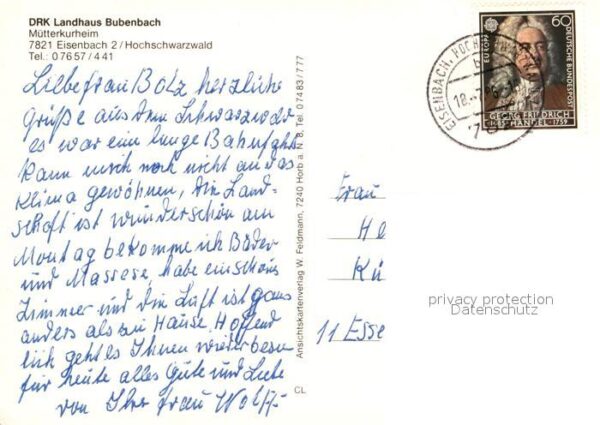 DRK Landhaus Bubenbach
Mütterkurheim
7821 Eisenbach 2/Hochschwarzwald
Tel.: 0 76 57/4 41
Liebe Frau Botz herzliche
Grüße aus dem Schwarzwald
es war eine lange Bahnfahrt
kann mich noch nicht an das
Klima gewöhnen, die Land-
schaft ist wunderschön am
Montag bekomme ich Bäder
und Massage, habe ein schönes
Zimmer und die Luft ist ganz
anders als zu Hause, Hoffent
lich geht es Ihnen wieder besser
für heute alles Gute und Liebe
von Ihrer Frau Wolff
Ansichtskartenverlag W. Feldmann, 7240 Horb a. N. 8, Tel. 07483/777
CL
EUROPA
60
DEUTSCHE BUNDESPOST
GEORG FRIEDRICH
HÄNDEL
1685
1759
EISENBACH, HOCHSCHWARZW
b
18.
Frau
He
Kü
11 Esse
privacy protection
Datenschutz